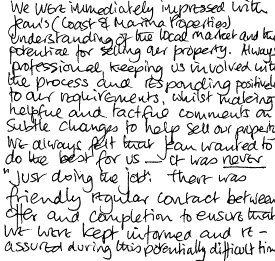 We were immediately impressed with
Jean's (Coast & Marina Properties)
understanding of the local market and the
potential for selling our property. Always
professional, keeping us involved with
the process and responding positively
to our requirements, whilst making
helpful and tactful comments on
subtle changes to help sell our property
We always felt that Jean wanted to
do the best for us — it was never
"just doing the job. There was
friendly regular contact between
offer and completion to ensure that
we were kept informed and re-
assured during this potentially difficult time